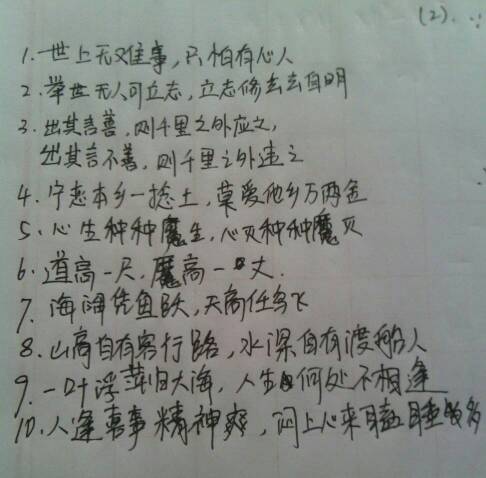 (2).
1. 世上无难事，只怕有心人
2. 举世无人可立志，立志修玄玄自明
3. 出其言善，则千里之外应之，
出其言不善，则千里之外违之
4. 宁恋本乡一捻土，莫爱他乡万两金
5. 心生种种魔生，心灭种种魔灭
6. 道高一尺，魔高一丈.
7. 海阔凭鱼跃，天高任鸟飞
8. 山高自有客行路，水深自有渡船人
9. 一叶浮萍归大海，人生何处不相逢
10. 人逢喜事精神爽，闷上心来瞌睡多